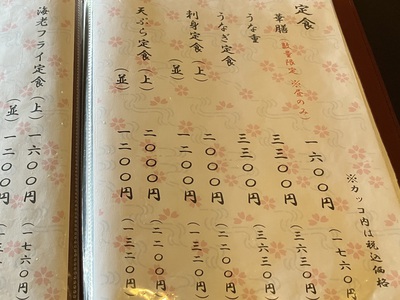 ※カッコ内は税込価格
定食
華膳 数量限定 ※昼のみ 一六〇〇円 (一七六〇円)
うな重 三三〇〇円 (三六三〇円)
うなぎ定食 三三〇〇円 (三六三〇円)
刺身定食 (上) 二〇〇〇円 (二二〇〇円)
(並) 一二〇〇円 (一三二〇円)
天ぷら定食 (上) 二〇〇〇円 (二二〇〇円)
(並) 一二〇〇円 (一三二〇円)
海老フライ定食 (上) 一六〇〇円 (一七六〇
(並) 一二〇〇円 (一三